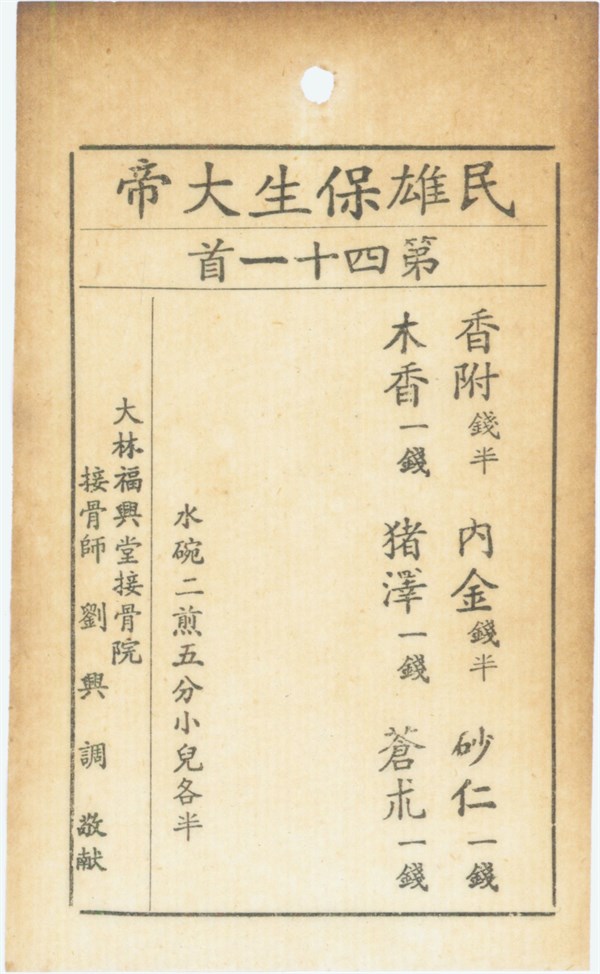 民雄保生大帝
第四十一首
香附錢半 內金錢半 砂仁一錢
木香一錢 猪澤一錢 蒼朮一錢
水碗二煎五分小兒各半
大林福興堂接骨院
接骨師 劉興調 敬献